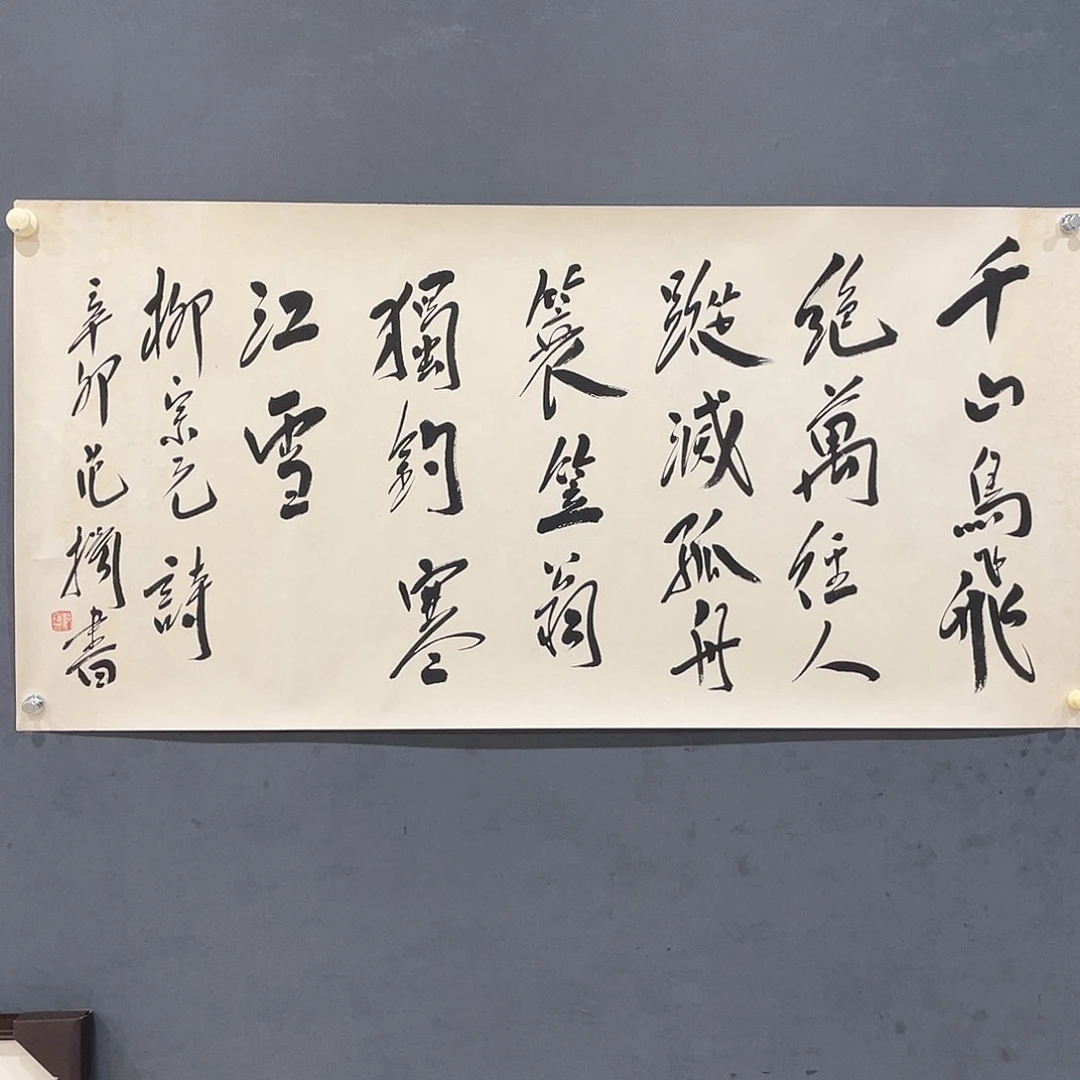 千山鳥飛
絶萬徑人
蹤滅孤舟
簑笠翁
獨釣寒
江雪
柳宗元詩
辛卯范擕書